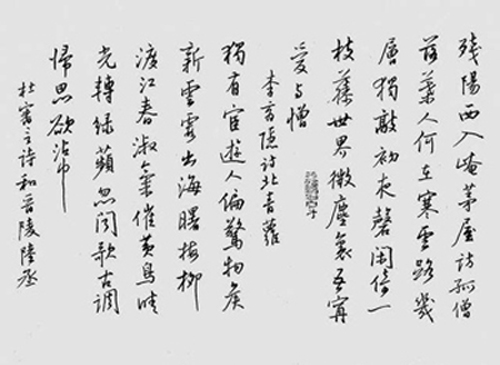 残陽西入崦茅屋訪孤僧
落葉人何在寒雲路幾
層獨敲初夜磬閑倚一
枝藤世界微塵裏吾寧
愛与憎
李商隱詩北青蘿
獨有宦遊人偏驚物候
新雲霞出海曙梅柳
渡江春淑氣催黃鳥晴
光轉綠蘋忽聞歌古調
歸思欲沾巾
杜審言詩和晉陵陸丞